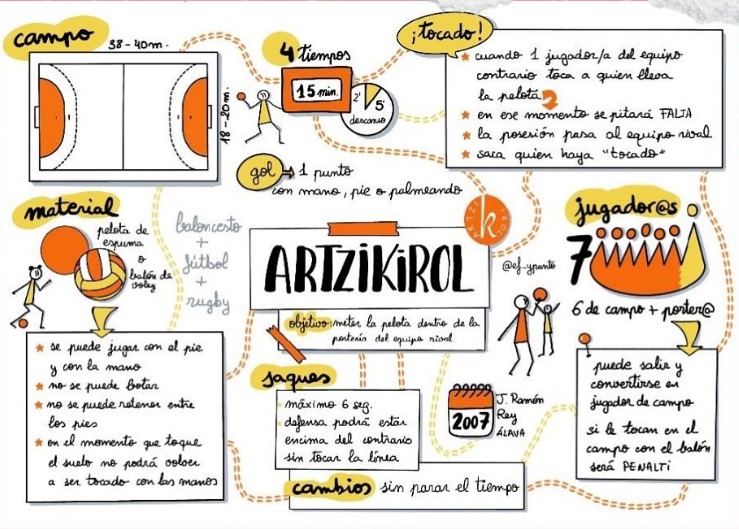 campo
38-40m.
18-20m.
4 tiempos
15 min.
2'
5'
descanso
¡tocado!
cuando 1 jugador/a del equipo
contrario toca a quien lleva
la pelota
en ese momento se pitará FALTA
la posesión pasa al equipo rival
saca quien haya "tocado"
gol → 1 punto
con mano, pie o palmeando
material
pelota de
espuma
o
balón de
voley
baloncesto
+
fútbol
+
rugby
se puede jugar con el pie
y con la mano
no se puede botar
no se puede retener entre
los pies
en el momento que toque
el suelo no podrá volver
a ser tocado con las manos
ARTZIKIROL
objetivo: meter la pelota dentro de la
portería del equipo rival
k
@ef_ypunto
jugador@s
7
6 de campo + porter@
puede salir y
convertirse en
jugador de campo
si le tocan en el
campo con el balón
será PENALTI
saques
máximo 6 seg.
defensa podrá estar
encima del contrario
sin tocar la línea
2007
J. Ramón
Rey
ÁLAVA
cambios sin parar el tiempo